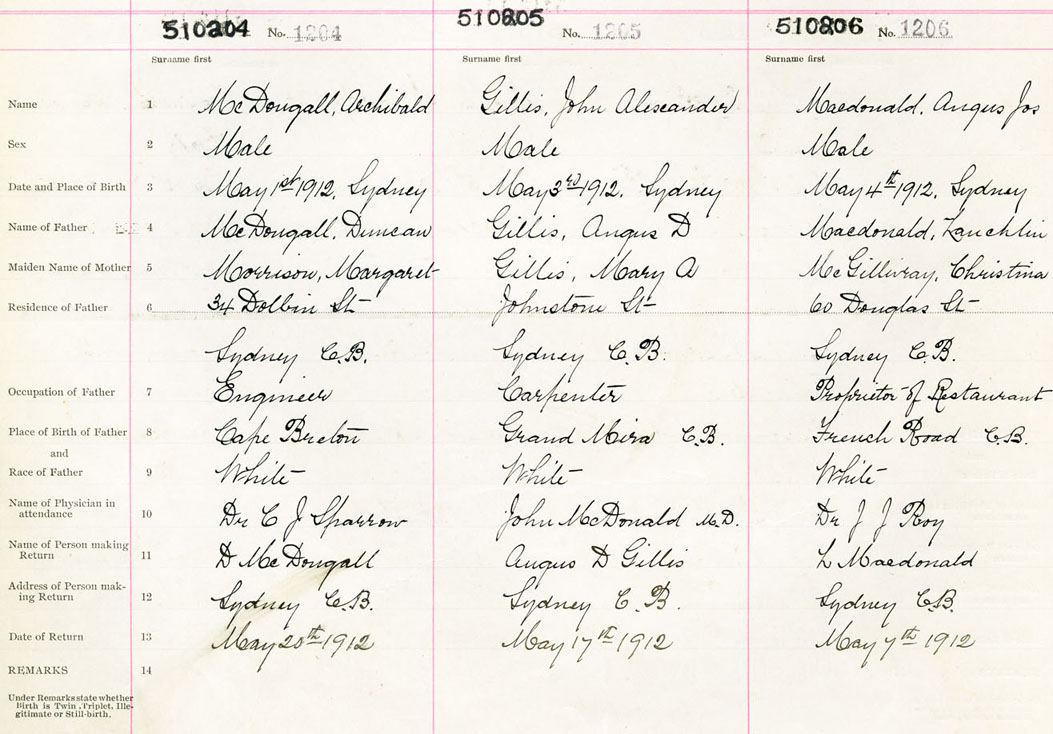 510204 No. 1204 510205 No. 1205 510206 No. 1206
Surname first Surname first Surname first
Name 1 McDougall, Archibald Gillis, John Alexander Macdonald, Angus Jos
Sex 2 Male Male Male
Date and Place of Birth 3 May 1st 1912, Sydney May 3rd 1912. Sydney May 4th 1912. Sydney
Name of Father 4 McDougall, Duncan Gillis, Angus D Macdonald, Lauchlin
Maiden Name of Mother 5 Morrison, Margaret Gillis, Mary A McGillivray, Christina
Residence of Father 6 34 Dolbin St Johnstone St 60 Douglas St
Sydney C.B. Sydney C.B. Sydney C.B.
Occupation of Father 7 Engineer Carpenter Proprietor of Restaurant
Place of Birth of Father 8 Cape Breton Grand Mira C.B. French Road C.B.
and
Race of Father 9 White White White
Name of Physician in
attendance 10 Dr C J Sparrow John McDonald M.D. Dr J J Roy
Name of Person making
Return 11 D McDougall Angus D Gillis L Macdonald
Address of Person mak-
ing Return 12 Sydney C.B. Sydney C.B. Sydney C.B.
Date of Return 13 May 20th 1912 May 17th 1912 May 7th 1912
REMARKS 14
Under Remarks state whether
Birth is Twin, Triplet, Ille-
gitimate or Still-birth.